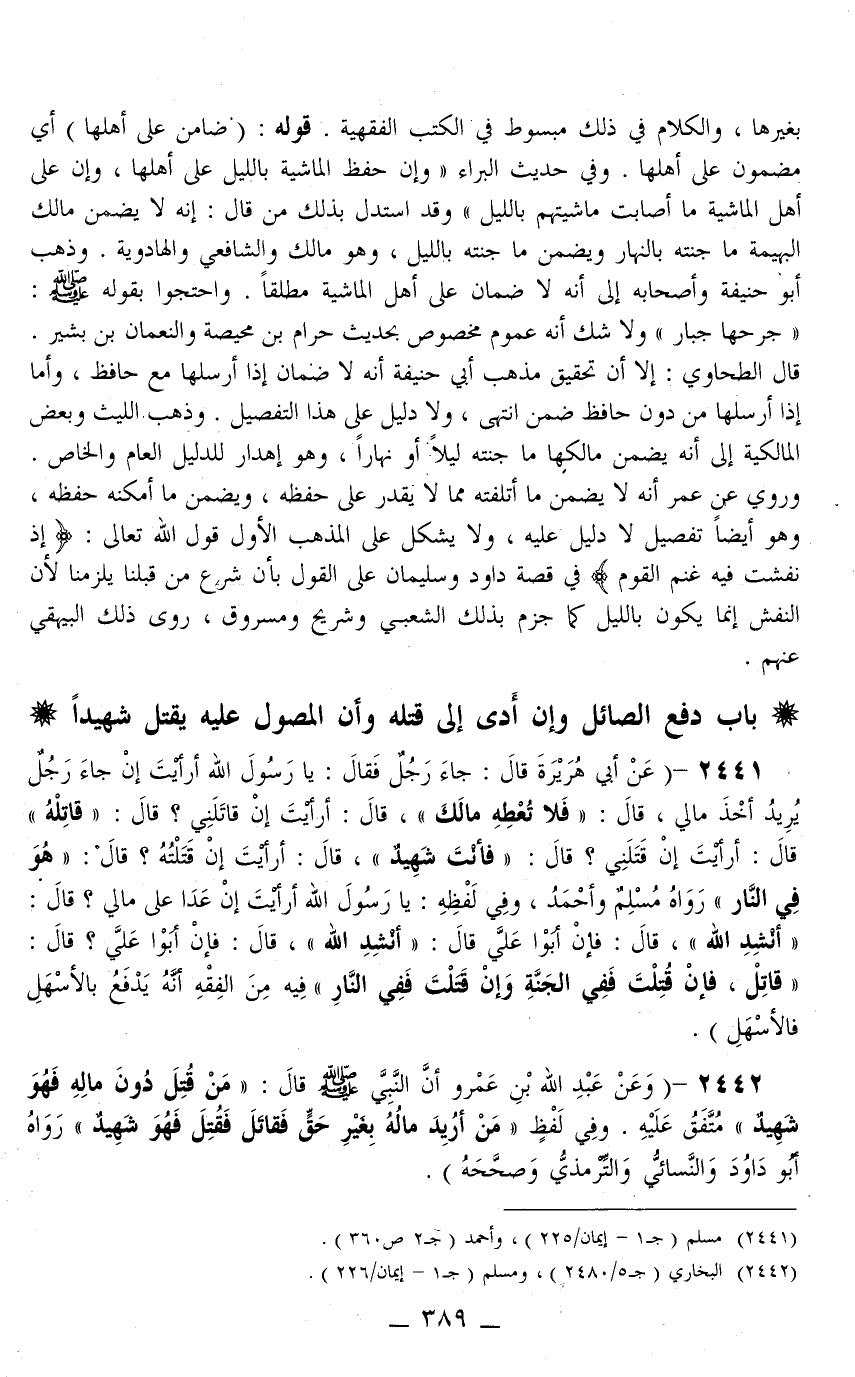 بغيرها ، والكلام في ذلك مبسوط في الكتب الفقهية . قوله : ( ضامن على أهلها ) أي
مضمون على أهلها . وفي حديث البراء « وإن حفظ الماشية بالليل على أهلها ، وإن على
أهل الماشية ما أصابت ماشيتهم بالليل » وقد استدل بذلك من قال : إنه لا يضمن مالك
البهيمة ما جنته بالنهار ويضمن ما جنته بالليل ، وهو مالك والشافعي والهادوية . وذهب
أبو حنيفة وأصحابه إلى أنه لا ضمان على أهل الماشية مطلقاً . واحتجوا بقوله ﷺ :
« جرحها جبار » ولا شك أنه عموم مخصوص بحديث حرام بن محيصة والنعمان بن بشير .
قال الطحاوي : إلا أن تحقيق مذهب أبي حنيفة أنه لا ضمان إذا أرسلها مع حافظ ، وأما
إذا أرسلها من دون حافظ ضمن انتهى ، ولا دليل على هذا التفصيل . وذهب الليث وبعض
المالكية إلى أنه يضمن مالكها ما جنته ليلاً أو نهاراً ، وهو إهدار للدليل العام والخاص .
وروي عن عمر أنه لا يضمن ما أتلفته مما لا يقدر على حفظه ، ويضمن ما أمكنه حفظه ،
وهو أيضاً تفصيل لا دليل عليه ، ولا يشكل على المذهب الأول قول الله تعالى : ﴿ إذ
نفشت فيه غنم القوم ﴾ في قصة داود وسليمان على القول بأن شرع من قبلنا يلزمنا لأن
النفش إنما يكون بالليل كما جزم بذلك الشعبي وشريح ومسروق ، روى ذلك البيهقي
عنهم .
باب دفع الصائل وإن أَدى إلى قتله وأن المصول عليه يقتل شهيداً
٢٤٤١ -( عَنْ أبي هُرَيْرَةَ قالَ : جاءَ رَجُلٌ فَقالَ : يا رَسُولَ الله أرأيْتَ إنْ جاءَ رَجُلٌ
يُرِيدُ أخْذَ مالي ، قالَ : « فَلا تُعْطِهِ مالَكَ » ، قالَ : أرأيْتَ إنْ قاتَلَنِي ؟ قالَ : « قاتِلْهُ »
قالَ : أرأيْتَ إنْ قَتَلَنِي ؟ قالَ : « فأنْتَ شَهِيدٌ » ، قالَ : أرأيْتَ إنْ قَتَلْتُهُ ؟ قالَ : « هُوَ
فِي النَّارِ » رَوَاهُ مُسْلِمٌ وأحْمَدُ ، وفِي لَفْظِهِ : يا رَسُولَ الله أرأيْتَ إنْ عَدَا على مالي ؟ قالَ :
« أنْشِدِ الله » ، قالَ : فإنْ أبَوْا عَليَّ قالَ : « أنْشِدِ الله » ، قالَ : فإنْ أبَوْا عَلَيَّ ؟ قالَ :
« قاتِلْ ، فإنْ قُتِلْتَ فَفِي الجَنَّةِ وَإنْ قَتَلْتَ فَفِي النَّارِ » فِيه مِنَ الفِقْهِ أنَّهُ يَدْفَعُ بالأسْهَلِ
فالأسْهَلِ ) .
٢٤٤٢ -( وَعَنْ عَبْدِ الله بْنِ عَمْرو أنَّ النَّبِيَّ ﷺ قالَ : « مَنْ قُتِلَ دُونَ مالِهِ فَهُوَ
شَهِيدٌ » مُتَّفَقٌ عَلَيْهِ . وفِي لَفْظٍ « مَنْ أرِيدَ مالُهُ بِغَيْرِ حَقٍّ فَقاتَل فَقُتِلَ فَهُوَ شَهِيدٌ » رَوَاهُ
أبُو دَاوُدَ وَالنَّسائيُّ وَالتِّرمذيُّ وَصحَّحَهُ ) .
(٢٤٤١) مسلم ( جـ١ - إيمان/٢٢٥ ) ، وأحمد ( جـ٢ ص٣٦٠ ) .
(٢٤٤٢) البخاري ( جـ٥/٢٤٨٠ ) ، ومسلم ( جـ١ - إيمان/٢٢٦ ) .
ـ ٣٨٩ ـ